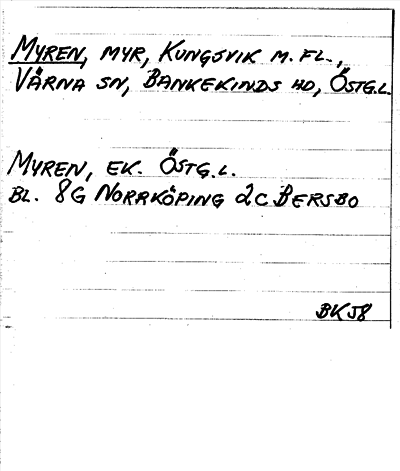 MYREN, MYR, KUNGSVIK M. FL.,
VÄRNA SN, BANKEKINDS HD, ÖSTG.L.
MYREN, EK. ÖSTG.L.
BL. 8G NORRKÖPING 2C BERSBO
BK58